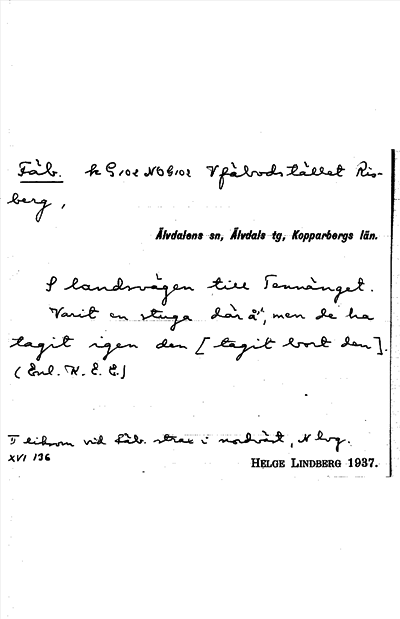 Fäb. k G102 NO G102 V fäbodstället Ris-
berg,
Älvdalens sn, Älvdals tg, Kopparbergs län.
S landsvägen till Tennänget.
"Varit en stuga där å", men de ha
tagit igen den [tagit bort den].
(Enl. K. E. E.)
T liksom vid Fäb. strax i nordväst, N lvg.
XVI 136
HELGE LINDBERG 1937.